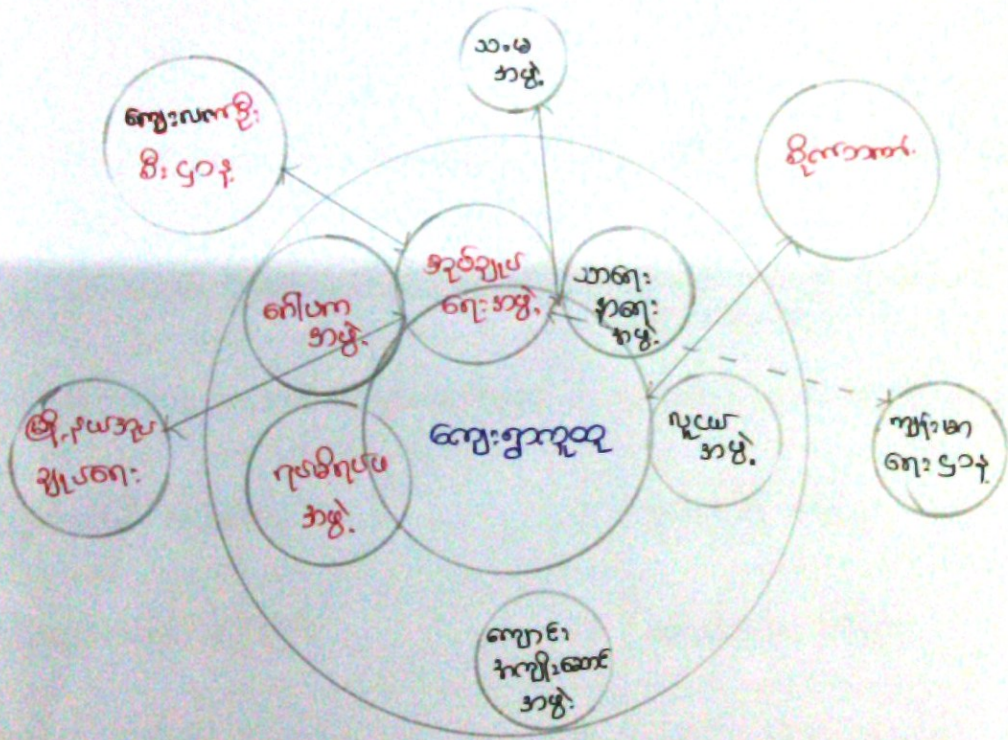 သ.မ
အဖွဲ့
ကျေးလက်ဦး
စီးဌာန
စိုက်ဘဏ်
အုပ်ချုပ်
ရေးအဖွဲ့
သာရေး
နာရေး
အဖွဲ့
ဂေါပက
အဖွဲ့
မြို့နယ်အုပ်
ချုပ်ရေး
ကျေးရွာလူထု
လူငယ်
အဖွဲ့
ကျန်းမာ
ရေးဌာန
ရပ်မိရပ်ဖ
အဖွဲ့
ကျောင်း
အကျိုးဆောင်
အဖွဲ့